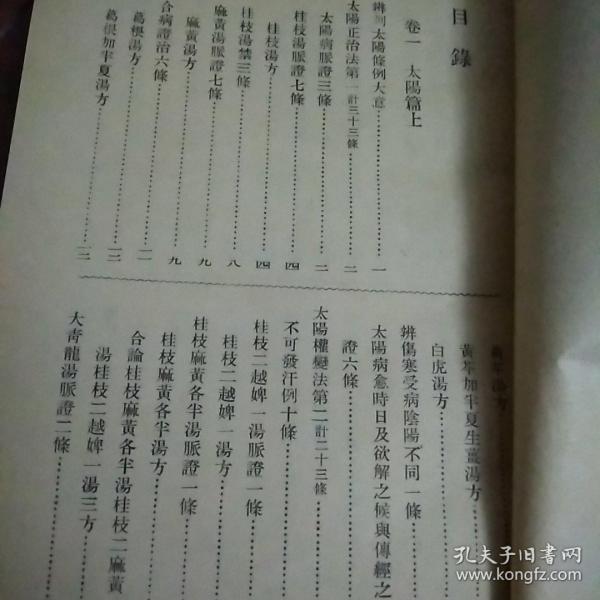 目錄
卷一 太陽篇上
辨列太陽條例大意…………一
太陽正治法第一計三十三條…………二
太陽病脈證三條…………二
桂枝湯脈證七條…………四
桂枝湯方…………四
桂枝湯禁三條…………八
麻黃湯脈證七條…………九
麻黃湯方…………九
合病證治六條…………一一
葛根湯方…………一二
葛根加半夏湯方…………一三
湯方
黃芩加半夏生薑湯方…………
白虎湯方…………
辨傷寒受病陰陽不同一條…………
太陽病愈時日及欲解之候與傳經之
證六條…………
太陽權變法第二計二十三條…………
不可發汗例十條…………
桂枝二越婢一湯脈證一條…………
桂枝二越婢一湯方…………
桂枝麻黃各半湯脈證一條…………
桂枝麻黃各半湯方…………
合論桂枝麻黃各半湯桂枝二麻黃
湯桂枝二越婢一湯三方…………
大青龍湯脈證二條…………
孔夫子旧書网
www.kongfz.com